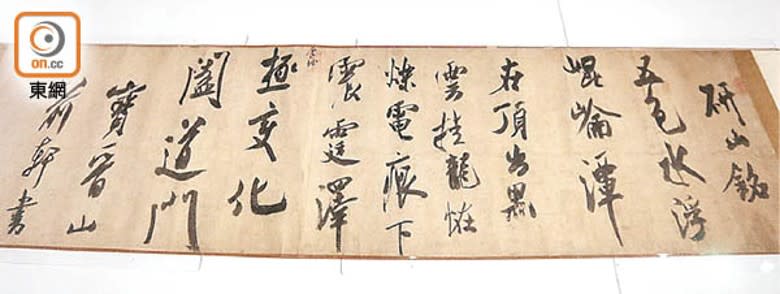 on.cc
東網
研山銘
五色水浮
崐崘潭
在頂出黑
雲挂龍怪
爍電痕下
震霆澤
厚坤
極變化
闔道門
寶晉山
前軒書